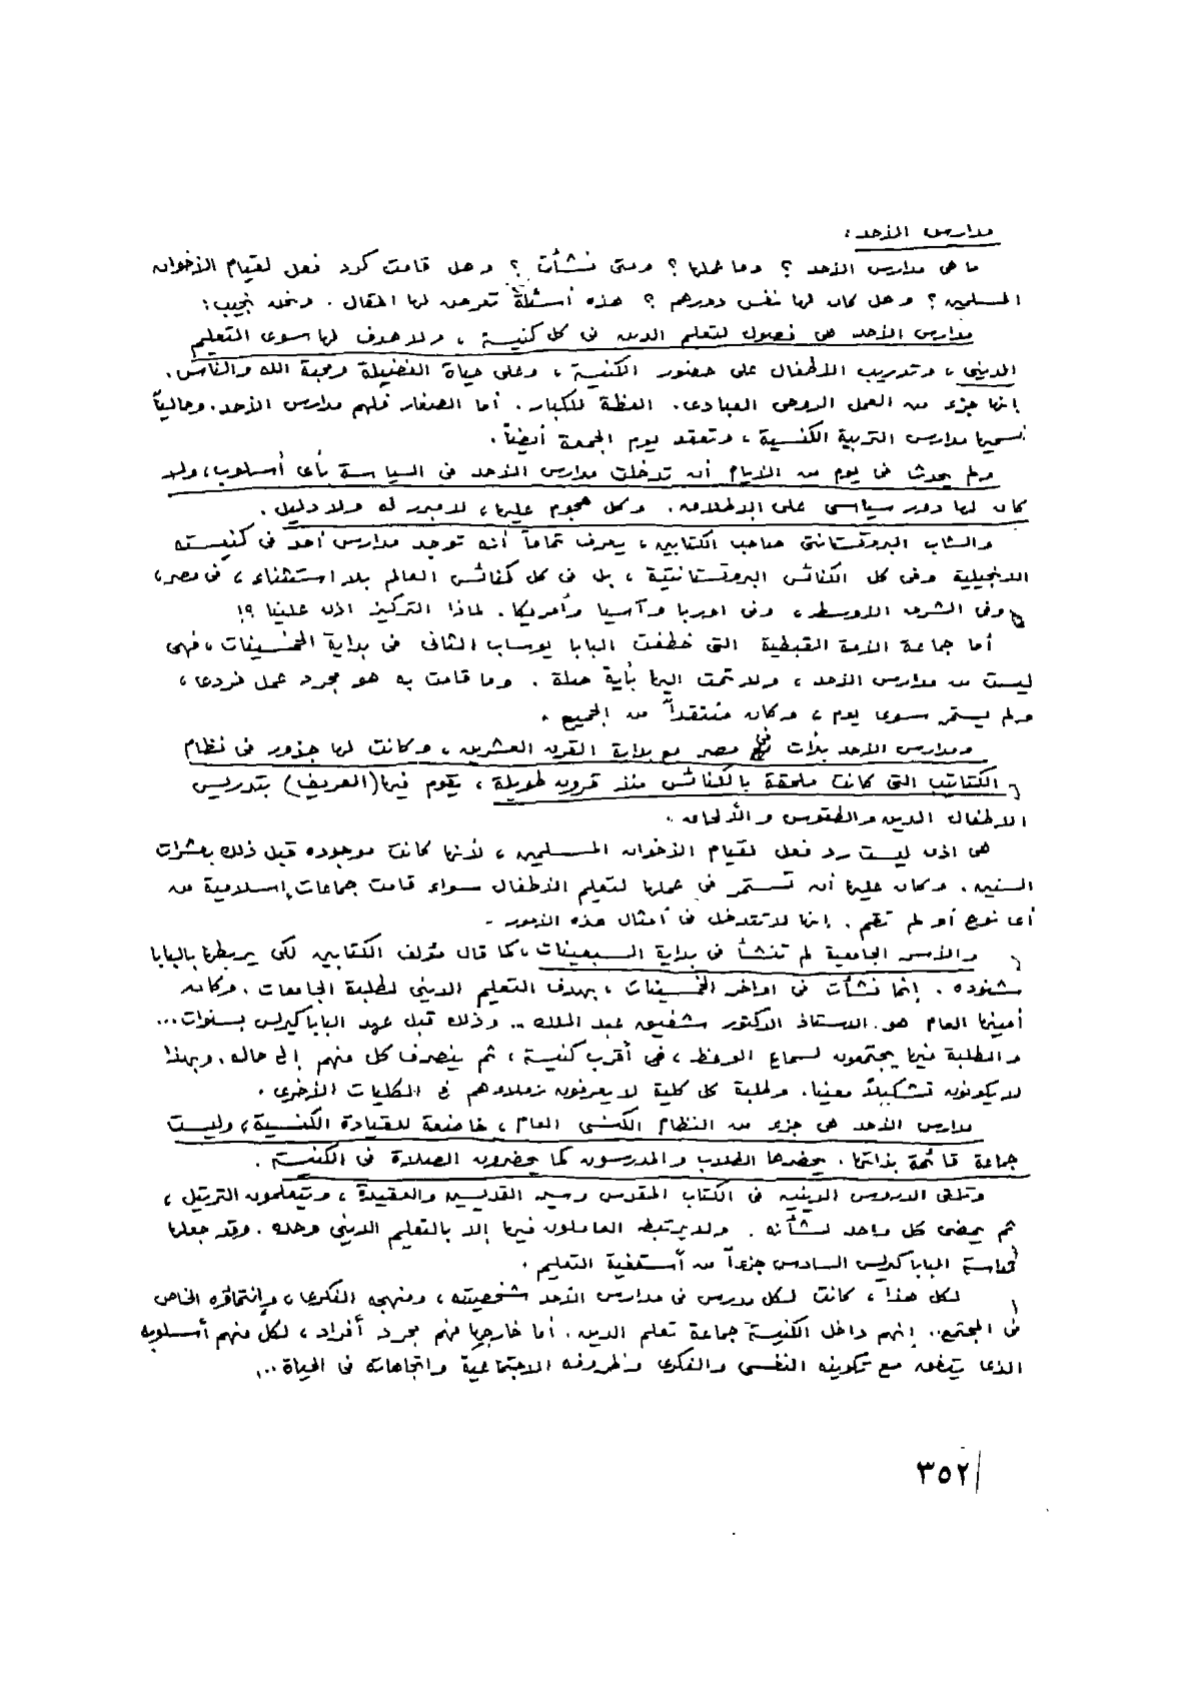 مدارس الأحد :
ما هى مدارس الأحد ؟ وما عملها ؟ ومتى نشأت ؟ وهل قامت كرد فعل لقيام الأخوان
المسلمين ؟ وهل كان لها نفس دورهم ؟ هذه أسئلة تعرض لها المقال . ونحن نجيب :
مدارس الأحد هى فصول لتعليم الدين فى كل كنيسة ، ولا هدف لها سوى التعليم
الدينى ، وتدريب الأطفال على حضور الكنيسة ، وعلى حياة الفضيلة ومحبة الله والناس .
إنها جزء من العمل الروحى العبادى . العظة للكبار . أما الصغار فلهم مدارس الأحد . وحالياً
نسميها مدارس التربية الكنسية ، وتعقد يوم الجمعة أيضاً .
ولم يحدث فى يوم من الأيام أن تدخلت مدارس الأحد فى السياسة بأى أسلوب ، ولا
كان لها دور سياسى على الإطلاق . وكل هجوم عليها ، لا مبرر له ولا دليل .
والشاب البروتستانتى صاحب الكتابين ، يعرف تماماً أنه توجد مدارس أحد فى كنيسته
الانجيلية وفى كل الكنائس البروتستانتية ، بل فى كل كنائس العالم بلا استثناء ، فى مصر ،
وفى الشرق الأوسط ، وفى اوربا وآسيا وأمريكا . لماذا التركيز اذن علينا ؟!
أما جماعة الأمة القبطية التى خطفت البابا يوساب الثانى فى بداية الخمسينات ، فهى
ليست من مدارس الأحد ، ولا تمت إليها بأية صلة . وما قامت به هو مجرد عمل فردى ،
ولم يستمر سوى يوم ، وكان منتقداً من الجميع .
ومدارس الأحد بدأت فى مصر مع بداية القرن العشرين ، وكانت لها جذور فى نظام
الكتاتيب التى كانت ملحقة بالكنائس منذ قرون طويلة ، يقوم فيها (العريف) بتدريس
الأطفال الدين والطقوس والألحان .
هى اذن ليست رد فعل لقيام الأخوان المسلمين ، لأنها كانت موجوده قبل ذلك بعشرات
السنين . وكان عليها أن تستمر فى عملها لتعليم الأطفال سواء قامت جماعات إسلامية من
أى نوع أو لم تقم . إنها لا تتدخل فى أمثال هذه الأمور .
والأسر الجامعية لم تنشأ فى بداية السبعينات ، كما قال مؤلف الكتابين لكى يربطها بالبابا
شنوده . إنما نشأت فى اواخر الخمسينات ، بهدف التعليم الدينى لطلبة الجامعات . وكان
أمينها العام هو الاستاذ الدكتور شفيق عبد الملك .. وذلك قبل عهد البابا كيرلس بسنوات ...
والطلبة فيها يجتمعون لسماع الوعظ ، فى أقرب كنيسة ، ثم ينصرف كل منهم إلى حاله . وبهذا
لا يكونون تشكيلاً معيناً . وطلبة كل كلية لا يعرفون زملاءهم فى الكليات الأخرى .
مدارس الأحد هى جزء من النظام الكنسى العام ، خاضعة للقيادة الكنسية ، وليست
جماعة قائمة بذاتها . يحضرها الطلاب والمدرسون كما يحضرون الصلاة فى الكنيسة .
وتلقى الدروس الدينيه فى الكتاب المقدس وسير القديسين والعقيدة ، ويتعلمون الترتيل ،
ثم يمضى كل واحد لشأنه . ولا يرتبط العاملون فيها إلا بالتعليم الدينى وحده . وقد جعلها
قداسة البابا كيرلس السادس جزءاً من أسقفية التعليم .
لكل هذا ، كانت لكل مدرس فى مدارس الأحد شخصيته ، ومنهجه الفكرى ، وإنتماؤه الخاص
فى المجتمع .. إنهم داخل الكنيسة جماعة تعلم الدين . أما خارجها فهم مجرد أفراد ، لكل منهم أسلوبه
الذى يتفق مع تكوينه النفسى والفكرى وظروفه الاجتماعية واتجاهاته فى الحياة ...
٣٥٢